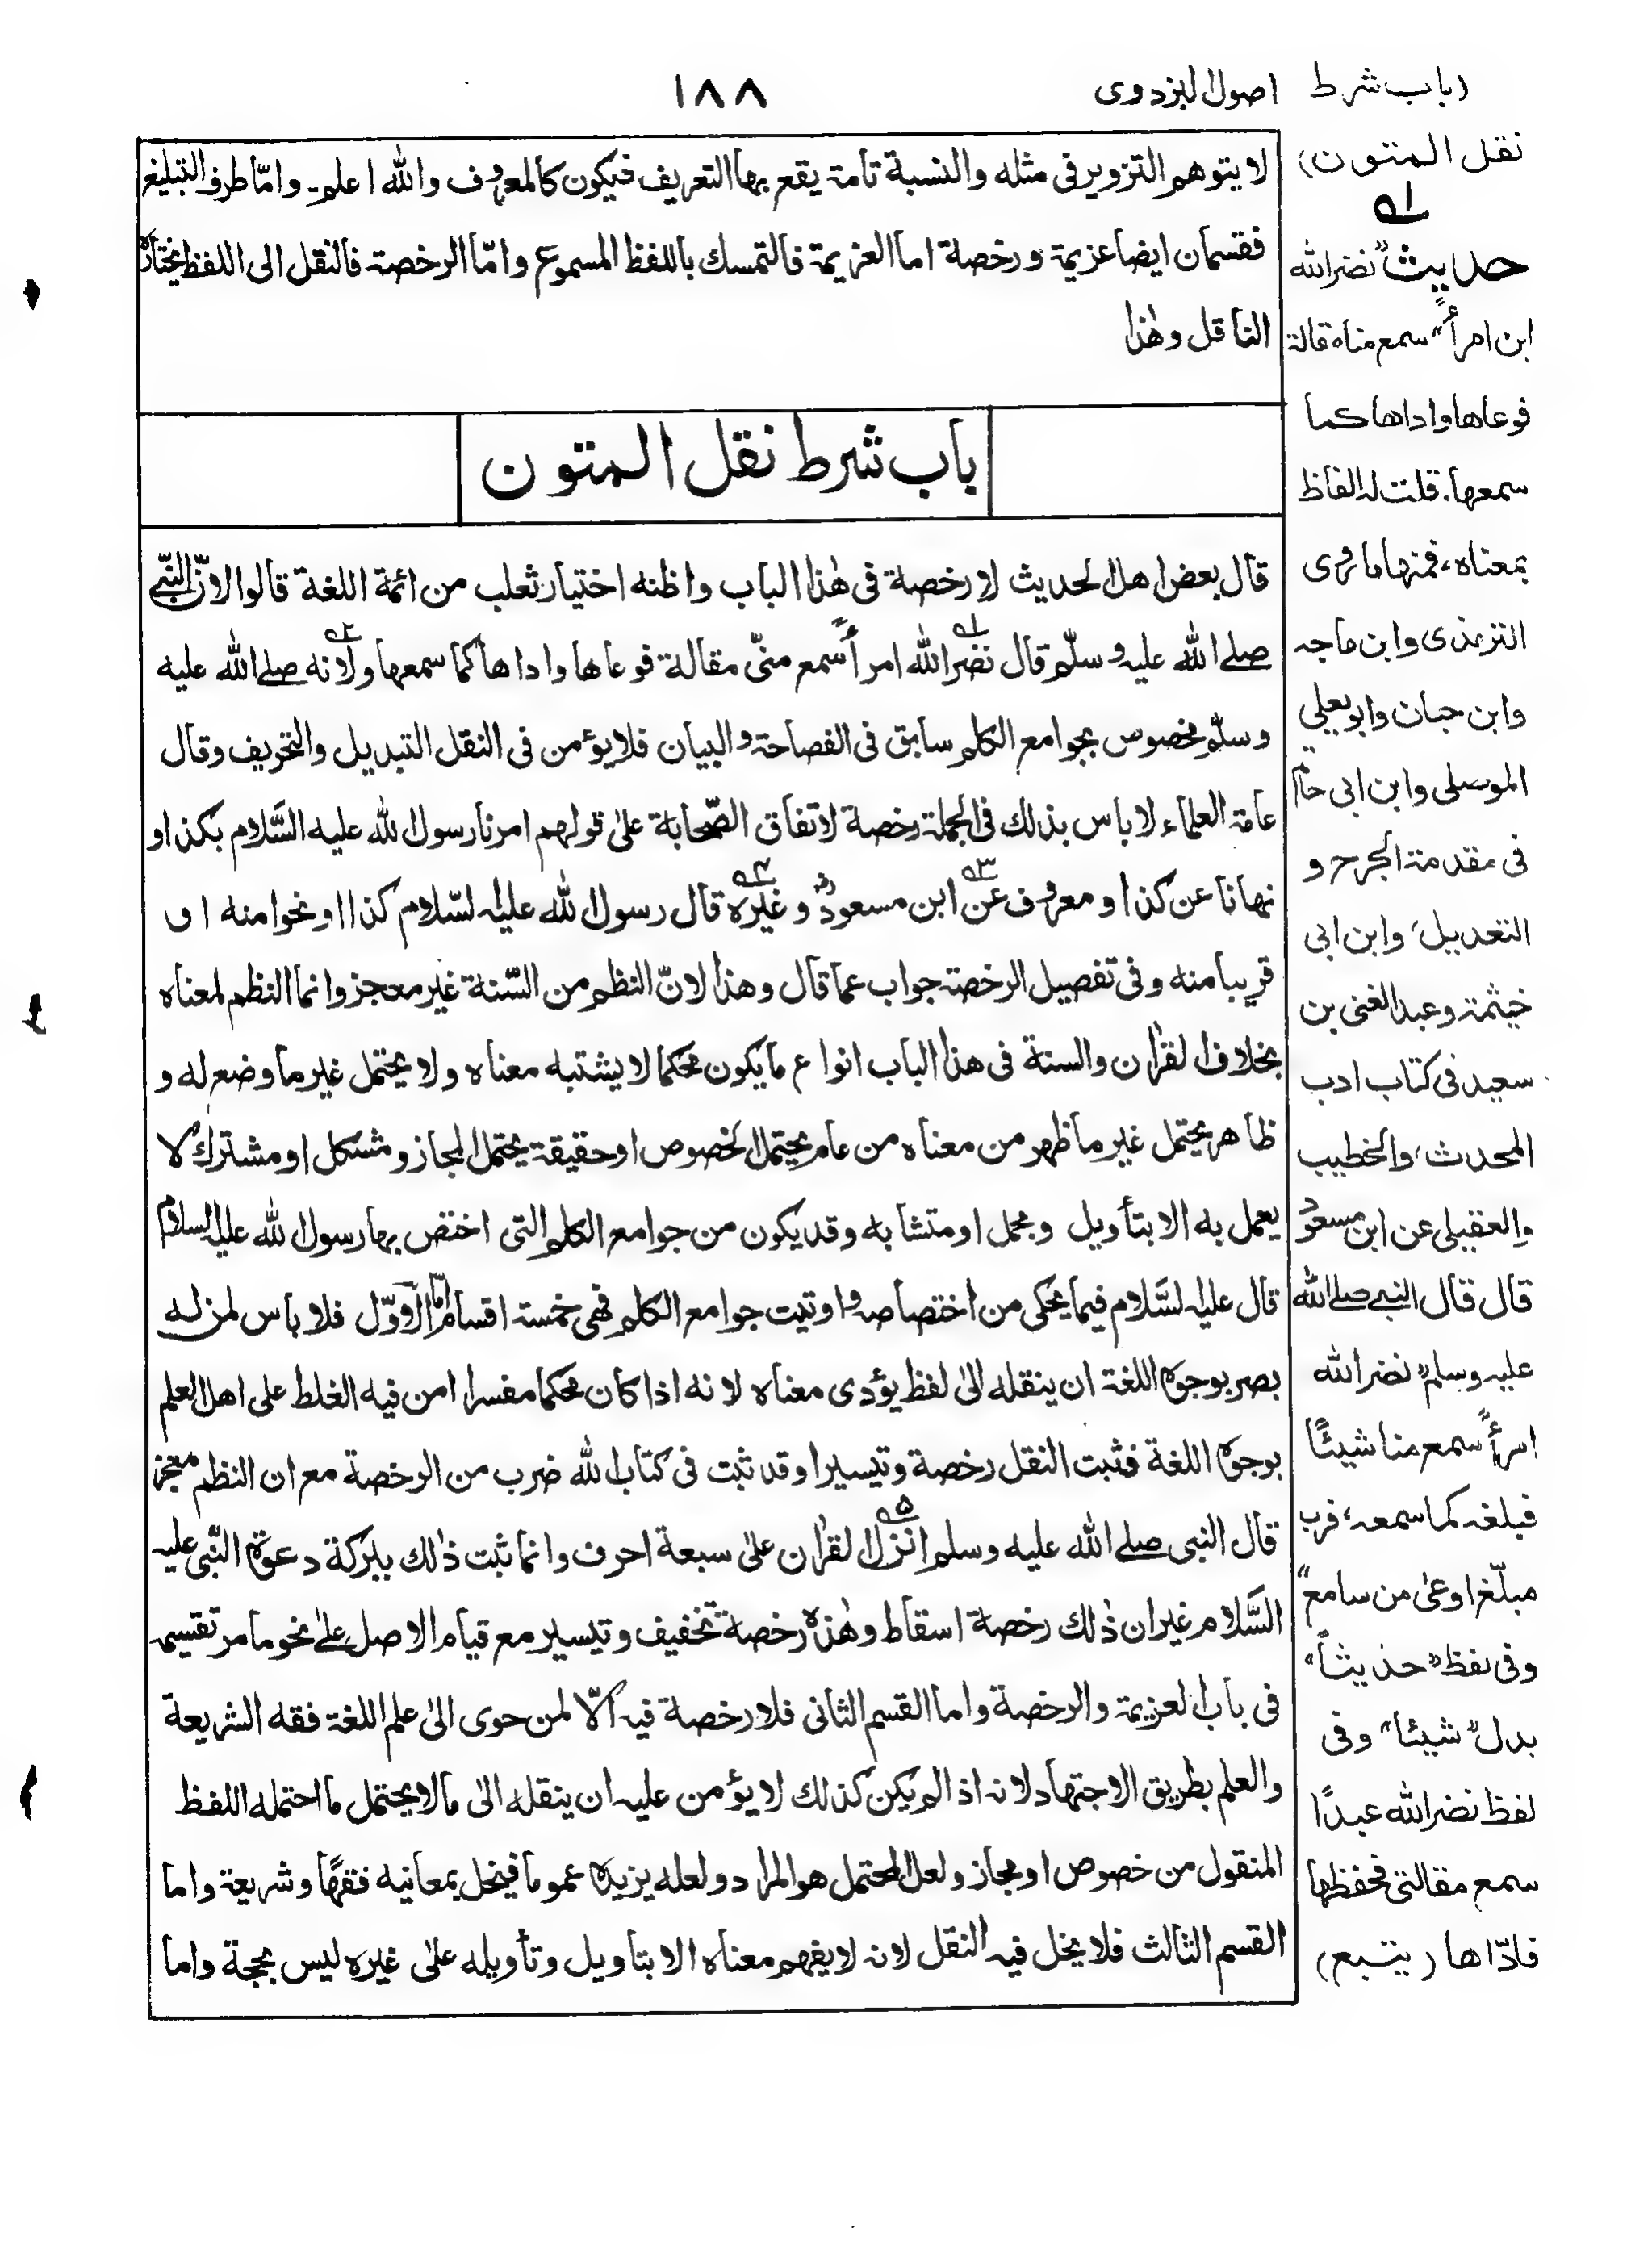 اصول البزدوى
١٨٨
لا يتوهم التزوير فى مثله والنسبة تامة يقع بها التعريف فيكون كالمعروف والله اعلم۔ وامّا طرف التبليغ
فقسمان ايضا عزيمة ورخصة اما العزيمة فالتمسك باللفظ المسموع وامّا الرخصة فالنقل الى اللفظ يختاره
الناقل وهٰذا
باب شرط نقل المتون
قال بعض اهل الحديث لا رخصة فى هٰذا الباب واظنه اختيار ثعلب من ائمة اللغة قالوا لانّ النّبى
صلے الله عليه وسلّم قال نضر الله امرأً سمع منّى مقالة فوعاها واداها كما سمعها ولانه صلے الله عليه
وسلّم مخصوص بجوامع الكلم سابق فى الفصاحة والبيان فلا يؤمن فى النقل التبديل والتحريف وقال
عامة العلماء لا باس بذلك فى الجملة رخصة لاتفاق الصّحابة علىٰ قولهم امرنا رسول الله عليه السَّلام بكذا و
نهانا عن كذا ومعروف عن ابن مسعودؓ وغيره قال رسول الله عليه السّلام كذا او نحوا منه او
قريبا منه وفى تفصيل الرخصة جواب عما قال وهذا لانّ النظم من السّنة غير معجز وانما النظم لمعناه
بخلاف القرٰان والسنة فى هذا الباب انواع ما يكون محكما لا يشتبه معناه ولا يحتمل غير ما وضع له و
ظاهر يحتمل غير ما ظهر من معناه من عام يحتمل الخصوص او حقيقة يحتمل المجاز ومشكل او مشترك لا
يعمل به الا بتأويل ومجمل او متشابه وقد يكون من جوامع الكلم التى اختص بها رسول الله عليه السلام
قال عليه السَّلام فيما يحكى من اختصاصه واوتيت جوامع الكلم فهى خمسة اقسام امّا الاوّل فلا باس لمن له
بصر بوجوه اللغة ان ينقله الىٰ لفظ يؤدى معناه لانه اذا كان محكما مفسرا امن فيه الغلط على اهل العلم
بوجوه اللغة فثبت النقل رخصة وتيسيرا وقد ثبت فى كتاب الله ضرب من الرخصة مع ان النظم معجز
قال النبى صلے الله عليه وسلم انزل القرٰان علىٰ سبعة احرف وانما ثبت ذٰلك ببركة دعوة النّبى عليه
السَّلام غير ان ذٰلك رخصة اسقاط وهٰذه رخصة تخفيف وتيسير مع قيام الاصل علےٰ نحو ما مر تقسيمه
فى باب العزيمة والرخصة واما القسم الثانى فلا رخصة فيه الّا لمن حوى الىٰ علم اللغة فقه الشريعة
والعلم بطريق الاجتهاد لانه اذا لم يكن كذلك لا يؤمن عليه ان ينقله الىٰ ما لا يحتمل ما احتمله اللفظ
المنقول من خصوص او مجاز ولعل المحتمل هو المراد ولعله يزيده عموما فيخل بمعانيه فقهًا وشريعة واما
القسم الثالث فلا يخل فيه النقل لانه لا يفهم معناه الا بتاويل وتأويله علىٰ غيره ليس بحجة واما
(باب شرط
نقل المتون)
١ه
حديث "نضر الله
ابن امرأً" سمع مناه قالة
فوعاها واداها كما
سمعها. قلت له الفاظ
بمعناه، فمنها ما روى
الترمذى وابن ماجه
وابن حبان وابو يعلي
الموصلى وابن ابى حاتم
فى مقدمة الجرح و
التعديل، وابن ابى
خيثمة وعبد الغنى بن
سعيد فى كتاب ادب
المحدث، والخطيب
والعقيلى عن ابن مسعودؓ
قال قال النبي صلے الله
عليه وسلم "نضر الله
امرأً سمع منا شيئًا
فبلغه كما سمعه، فرب
مبلّغ اوعىٰ من سامع"
وفى لفظ "حديثاً"
بدل "شيئا" وفى
لفظ نضر الله عبدًا
سمع مقالتى فحفظها
فادّاها (يتبع)